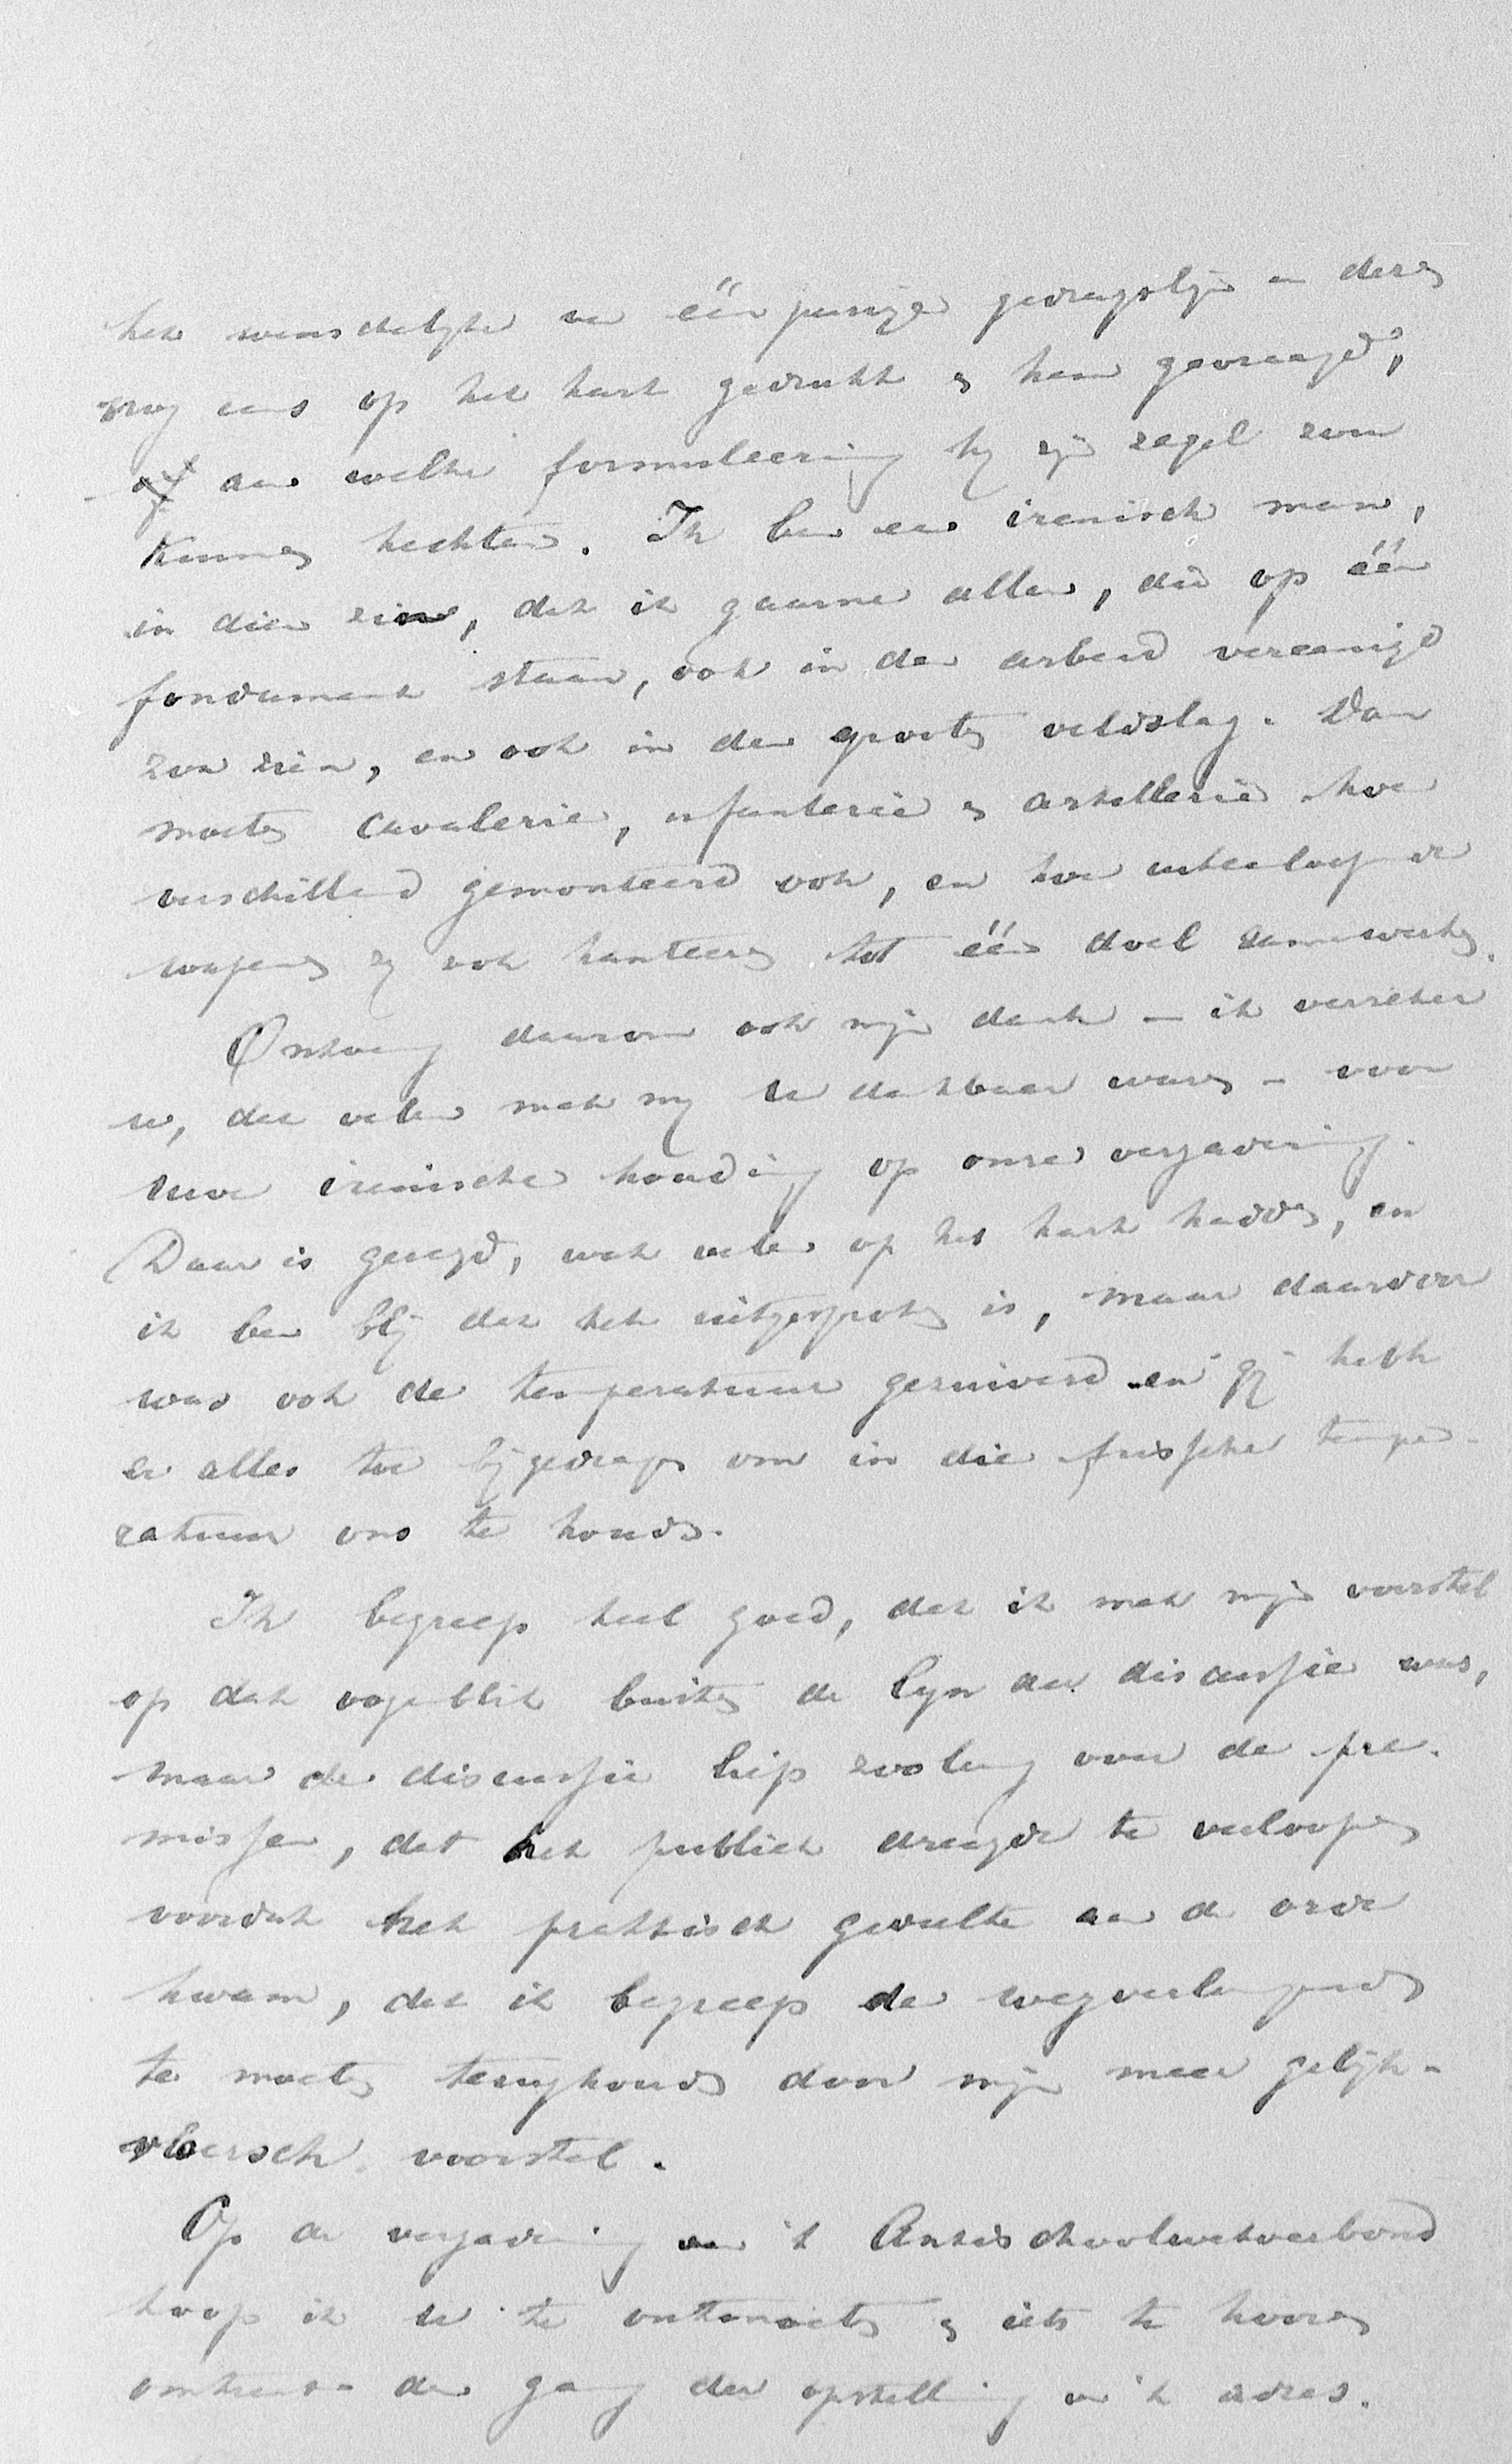 het wenschelijke van éénparige gedragslijn in deze
nog eens op het hart gedrukt & hem gevraagd,
of aan welke formuleering hij zijn zegel zou
kunnen hechten. Ik ben een irenisch man,
in dien zin, dat ik gaarne allen, die op één
fondament staan, ook in den arbeid vereenigd
zou zien, en ook in den grooten veldslag. Dan
moeten cavalerie, infanterie & artillerie hoe
verschillend gemonteerd ook, en hoe uiteenloopende
wapenen zij ook hanteeren tot één doel samenwerken.
Ontvang daarom ook mijn dank – ik verzeker
u, dat velen met mij u dankbaar waren – voor
uwe irenische houding op onze vergadering.
Daar is gezegd, wat velen op het hart hadden, en
ik ben blij dat het uitgesproken is, maar daardoor
was ook de temperatuur gezuiverd en gij hebt
er alles toe bijgedragen om in die frissche tempe-
ratuur ons te houden.
Ik begreep heel goed, dat ik met mijn voorstel
op dat oogenblik buiten de lijn der discussie was,
maar de discussie liep zoolang over de pre-
missen, dat het publiek dreigde te verloopen
voordat het praktisch gedeelte aan de orde
kwam, dat ik begreep de wegverlangenden
te moeten terughouden door mijn meer gelijk-
vloersch voorstel.
Op de vergadering van 't Antischoolwetverbond
hoop ik u te ontmoeten & iets te hooren
omtrent den gang der opstelling van 't adres.